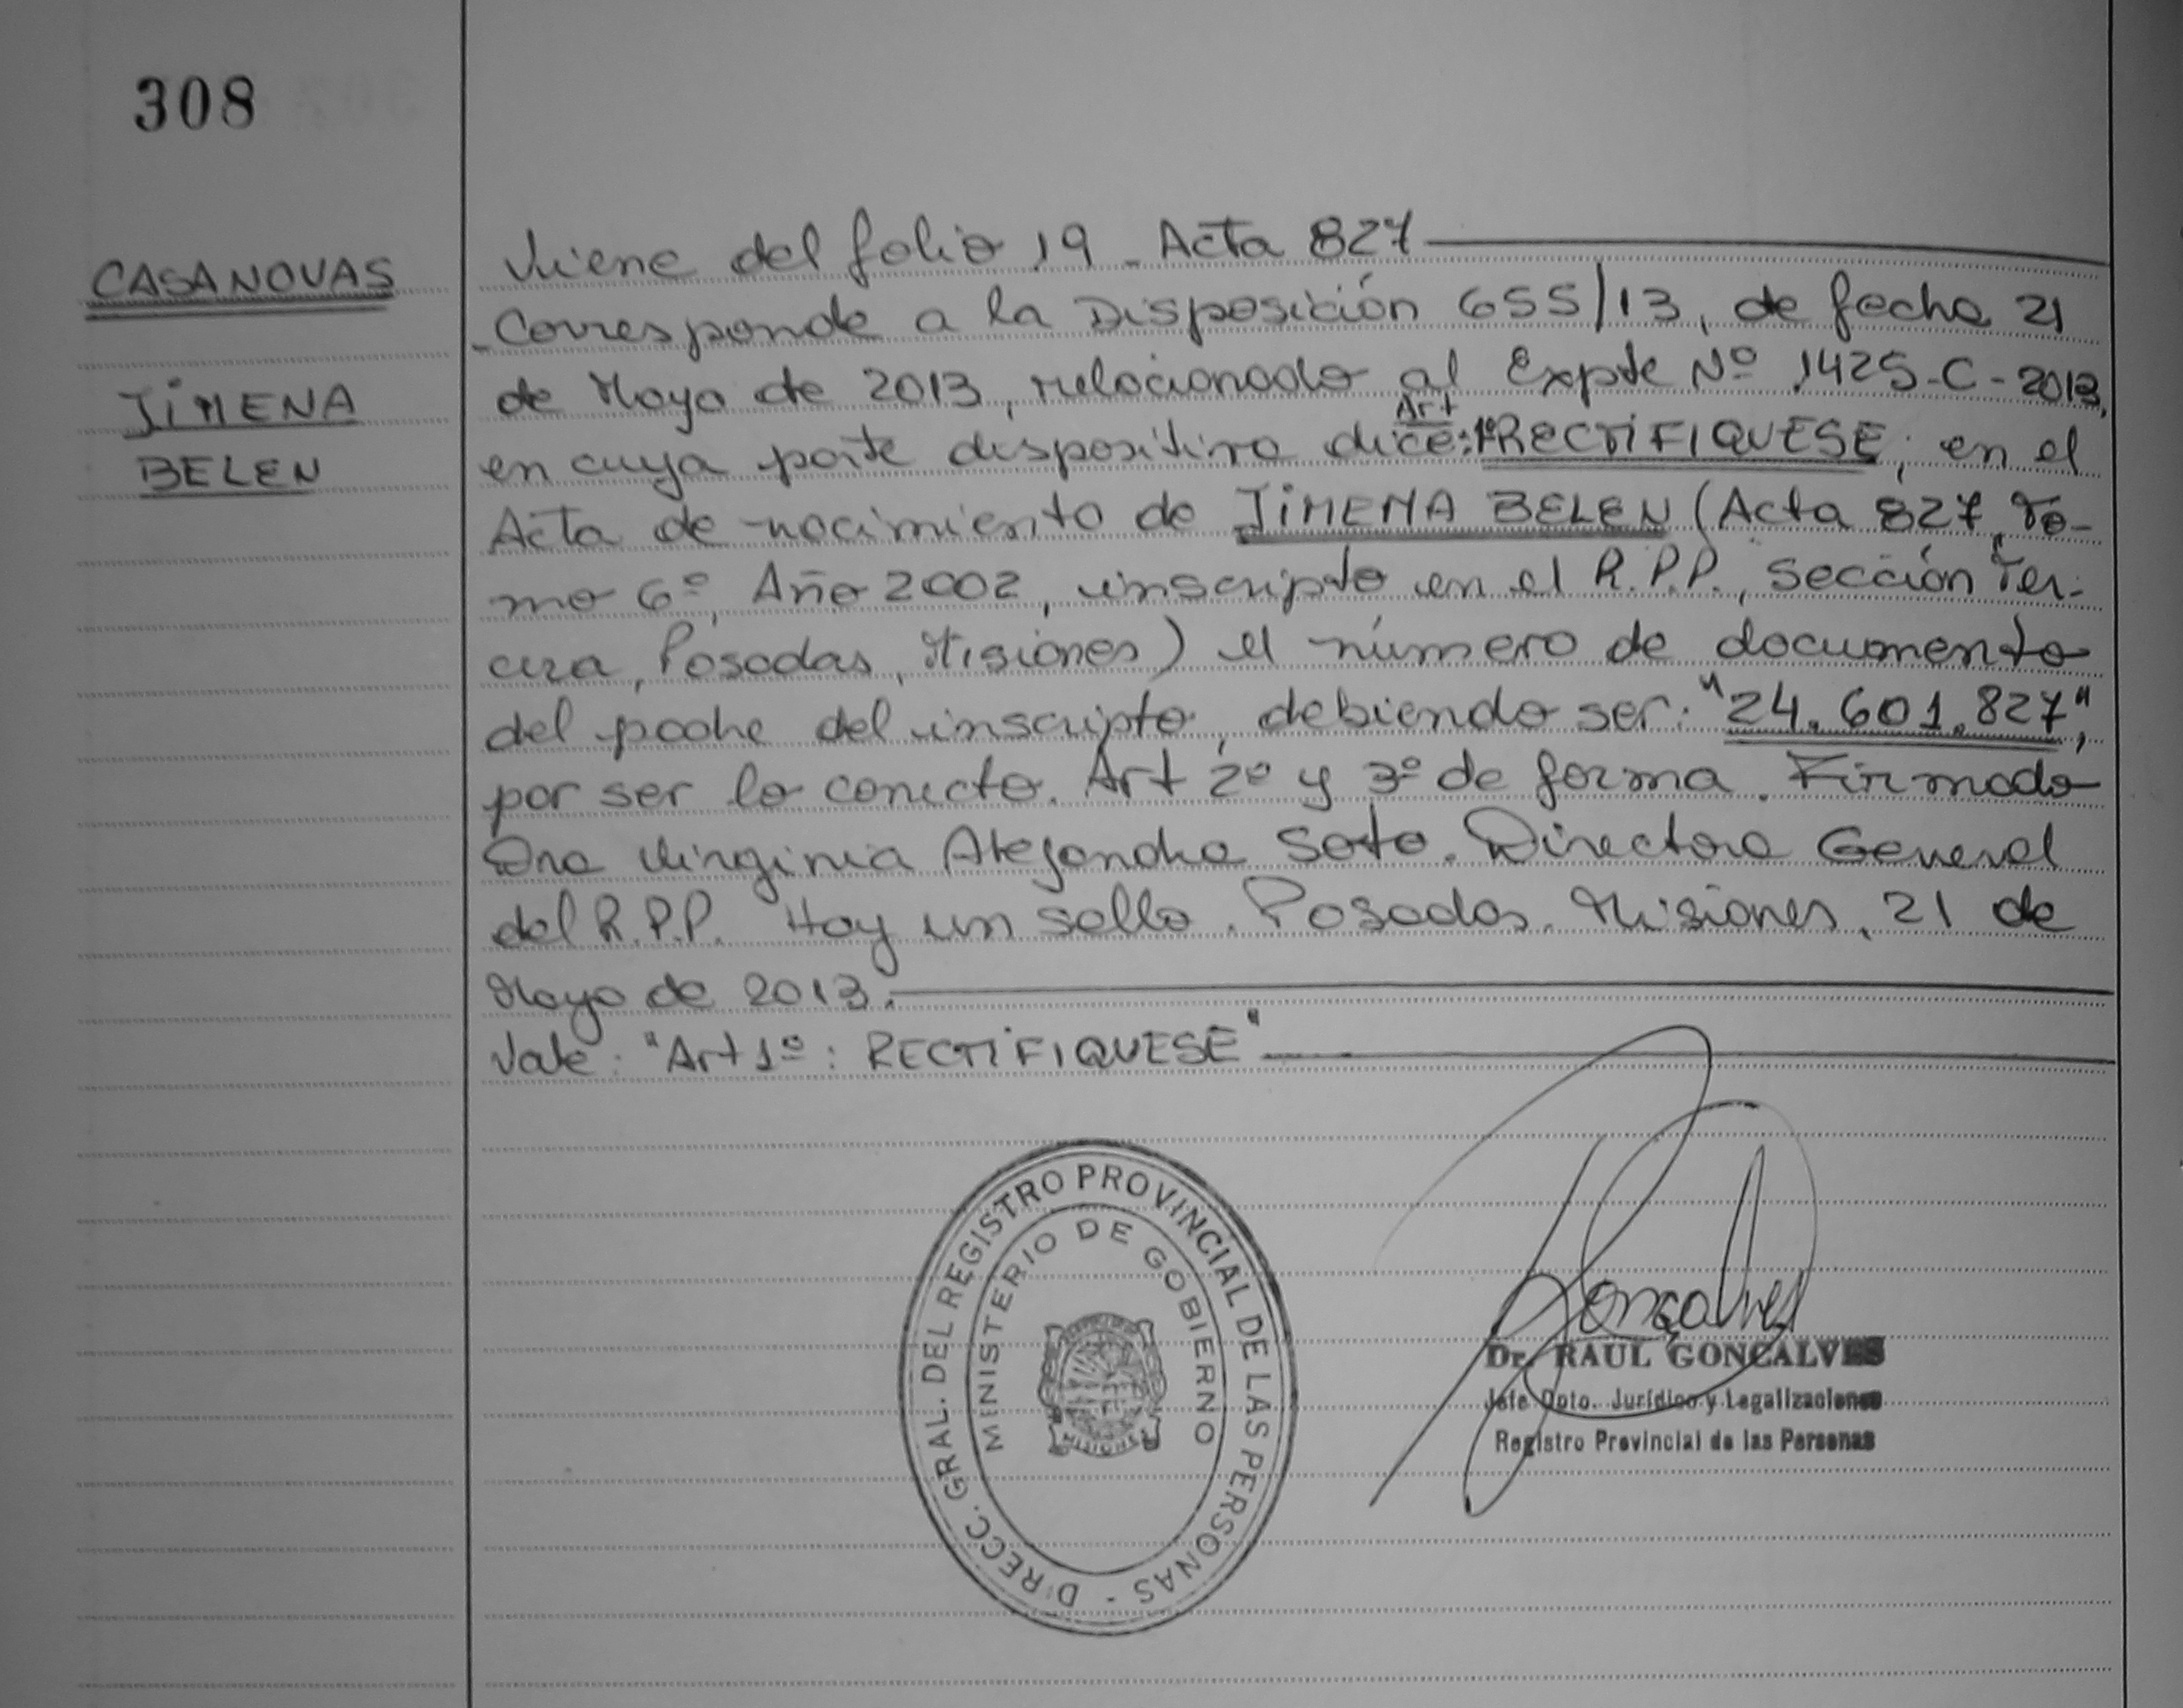 308
CASANOVAS
JIMENA
BELEN
Viene del folio 19 - Acta 827
- Corresponde a la Disposición 655/13, de fecha 21
de Mayo de 2013, relacionado al Expte Nº 1425-C-2013,
Art
en cuya parte dispositiva dice: 1º RECTIFIQUESE, en el
Acta de nacimiento de JIMENA BELEN (Acta 827, To-
mo 6º, Año 2002, inscripto en el R.P.P., Sección Ter-
cera, Posadas, Misiones) el número de documento
del padre del inscripto, debiendo ser: "24.601.827",
por ser lo correcto. Art 2º y 3º de forma. Firmado
Dra Virginia Alejandra Soto. Directora General
del R.P.P. Hay un sello. Posadas. Misiones, 21 de
Mayo de 2013.
Vale: "Art 1º: RECTIFIQUESE"
DIRECC. GRAL. DEL REGISTRO PROVINCIAL DE LAS PERSONAS -
MINISTERIO DE GOBIERNO
MISIONES
Gonçalves
Dr. RAUL GONÇALVES
Jefe Dpto. Jurídico y Legalizaciones
Registro Provincial de las Personas